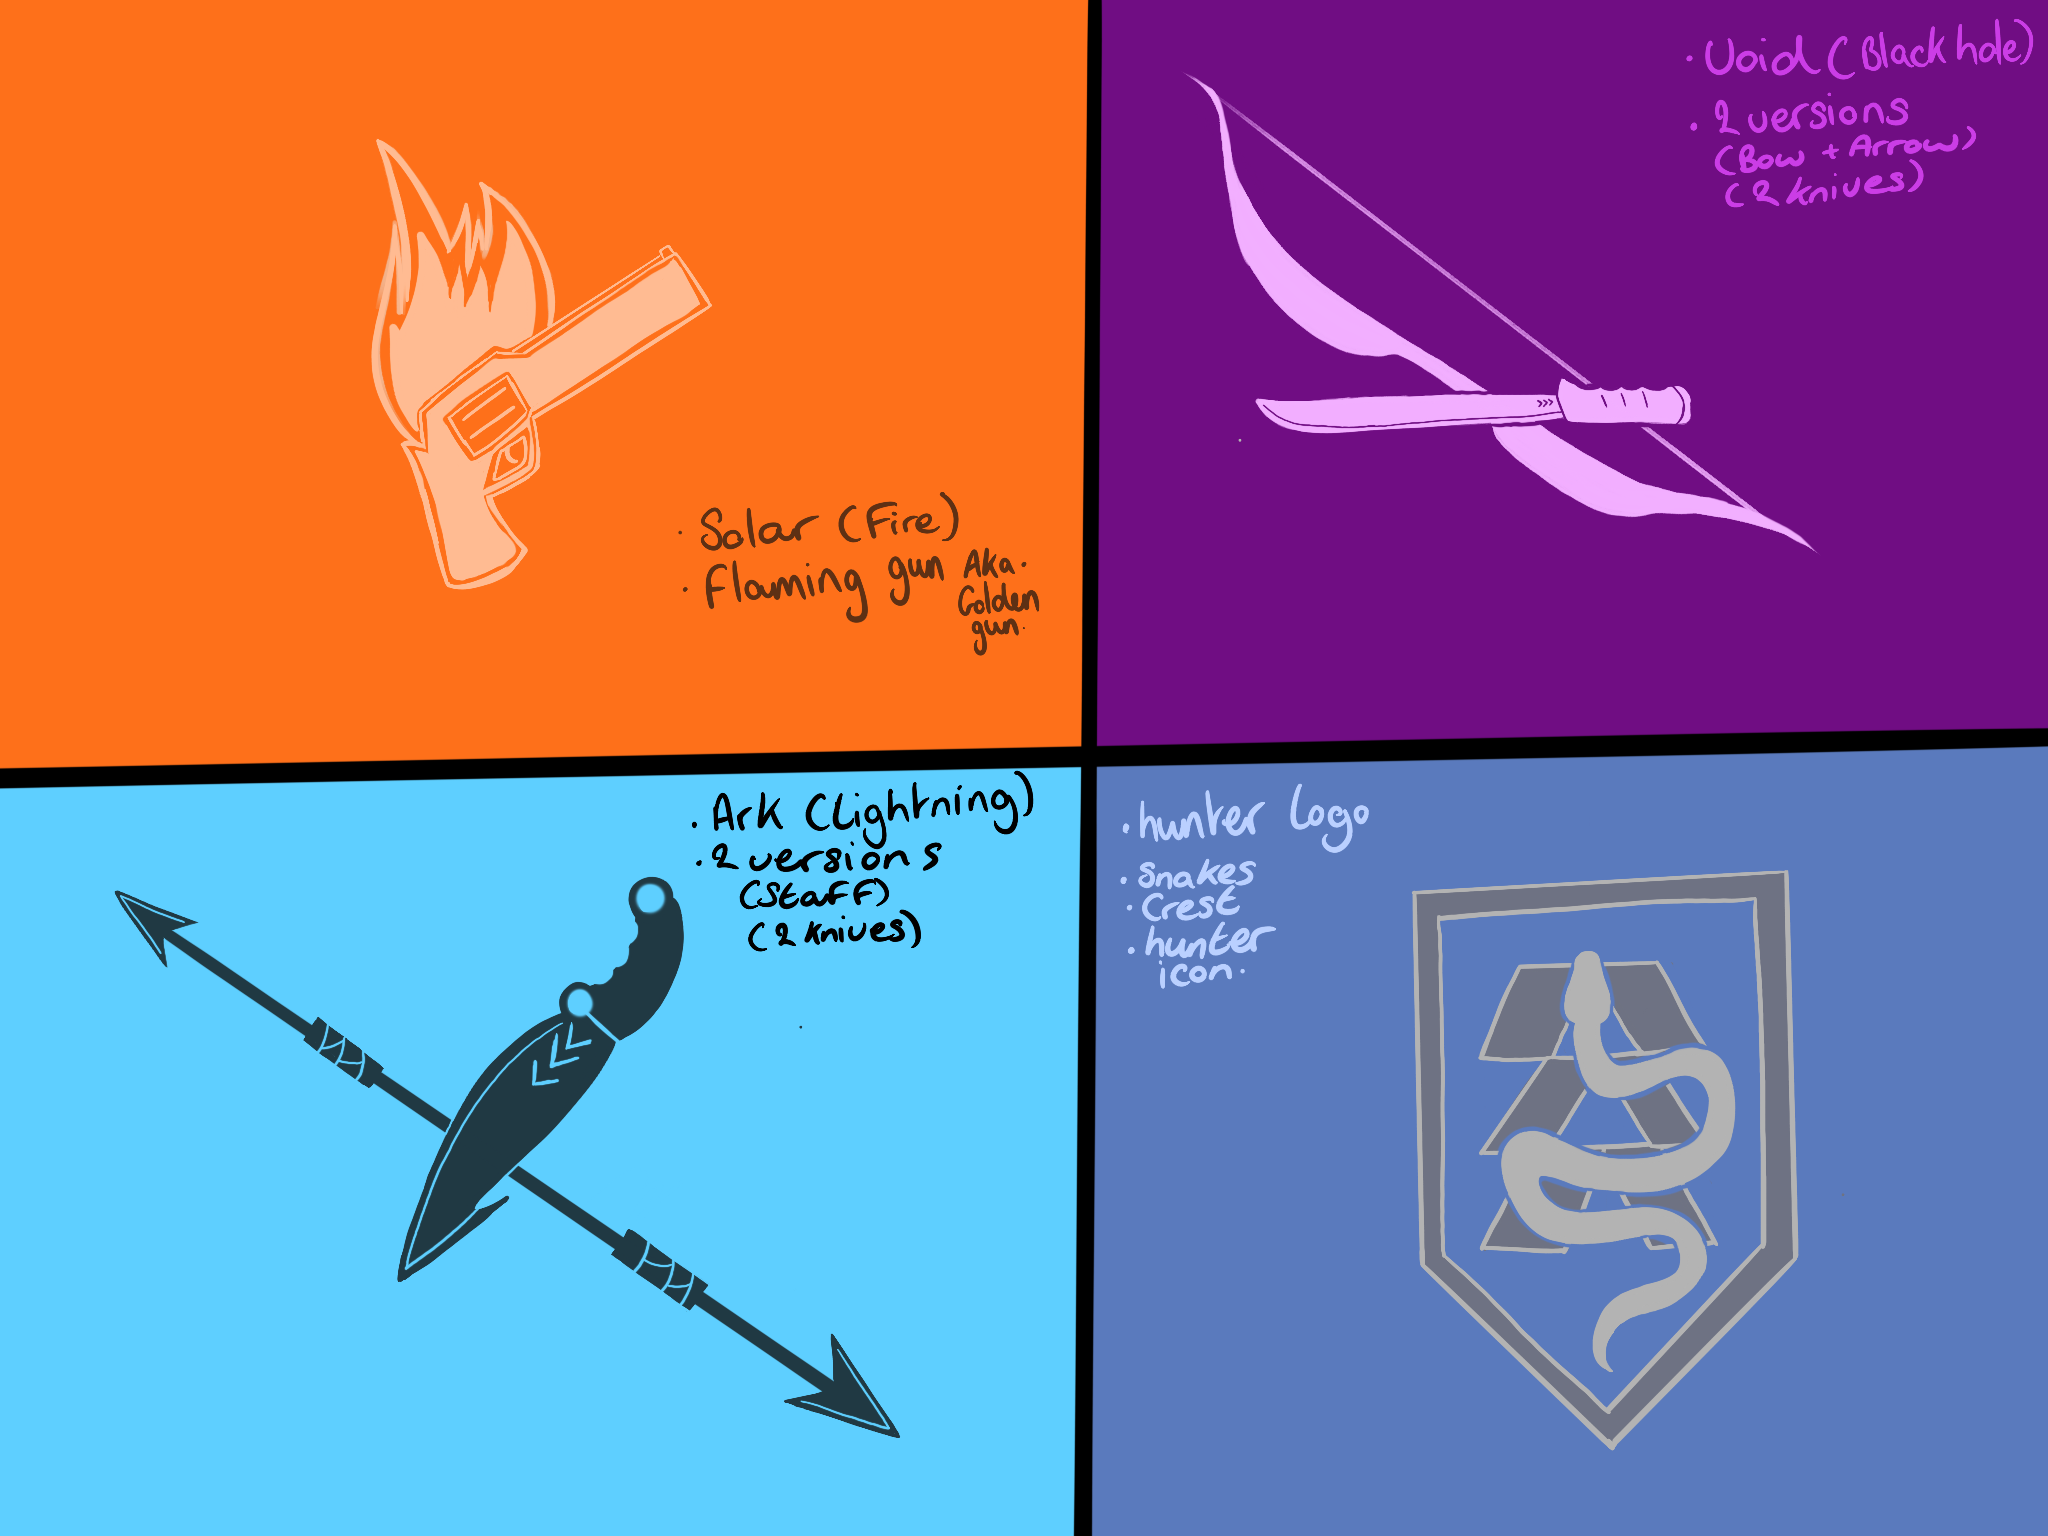 · Solar (Fire)
· Flaming gun Aka.
Golden
gun.
· Void (Black hole)
· 2 versions
(Bow + Arrow)
(2 knives)
· Ark (Lightning)
· 2 versions
(Staff)
(2 knives)
· hunter logo
· snakes
· Crest
· hunter
icon.